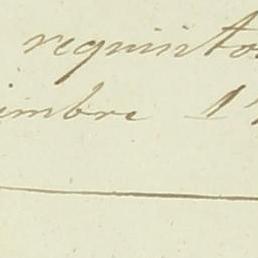 requinto
imbre 1